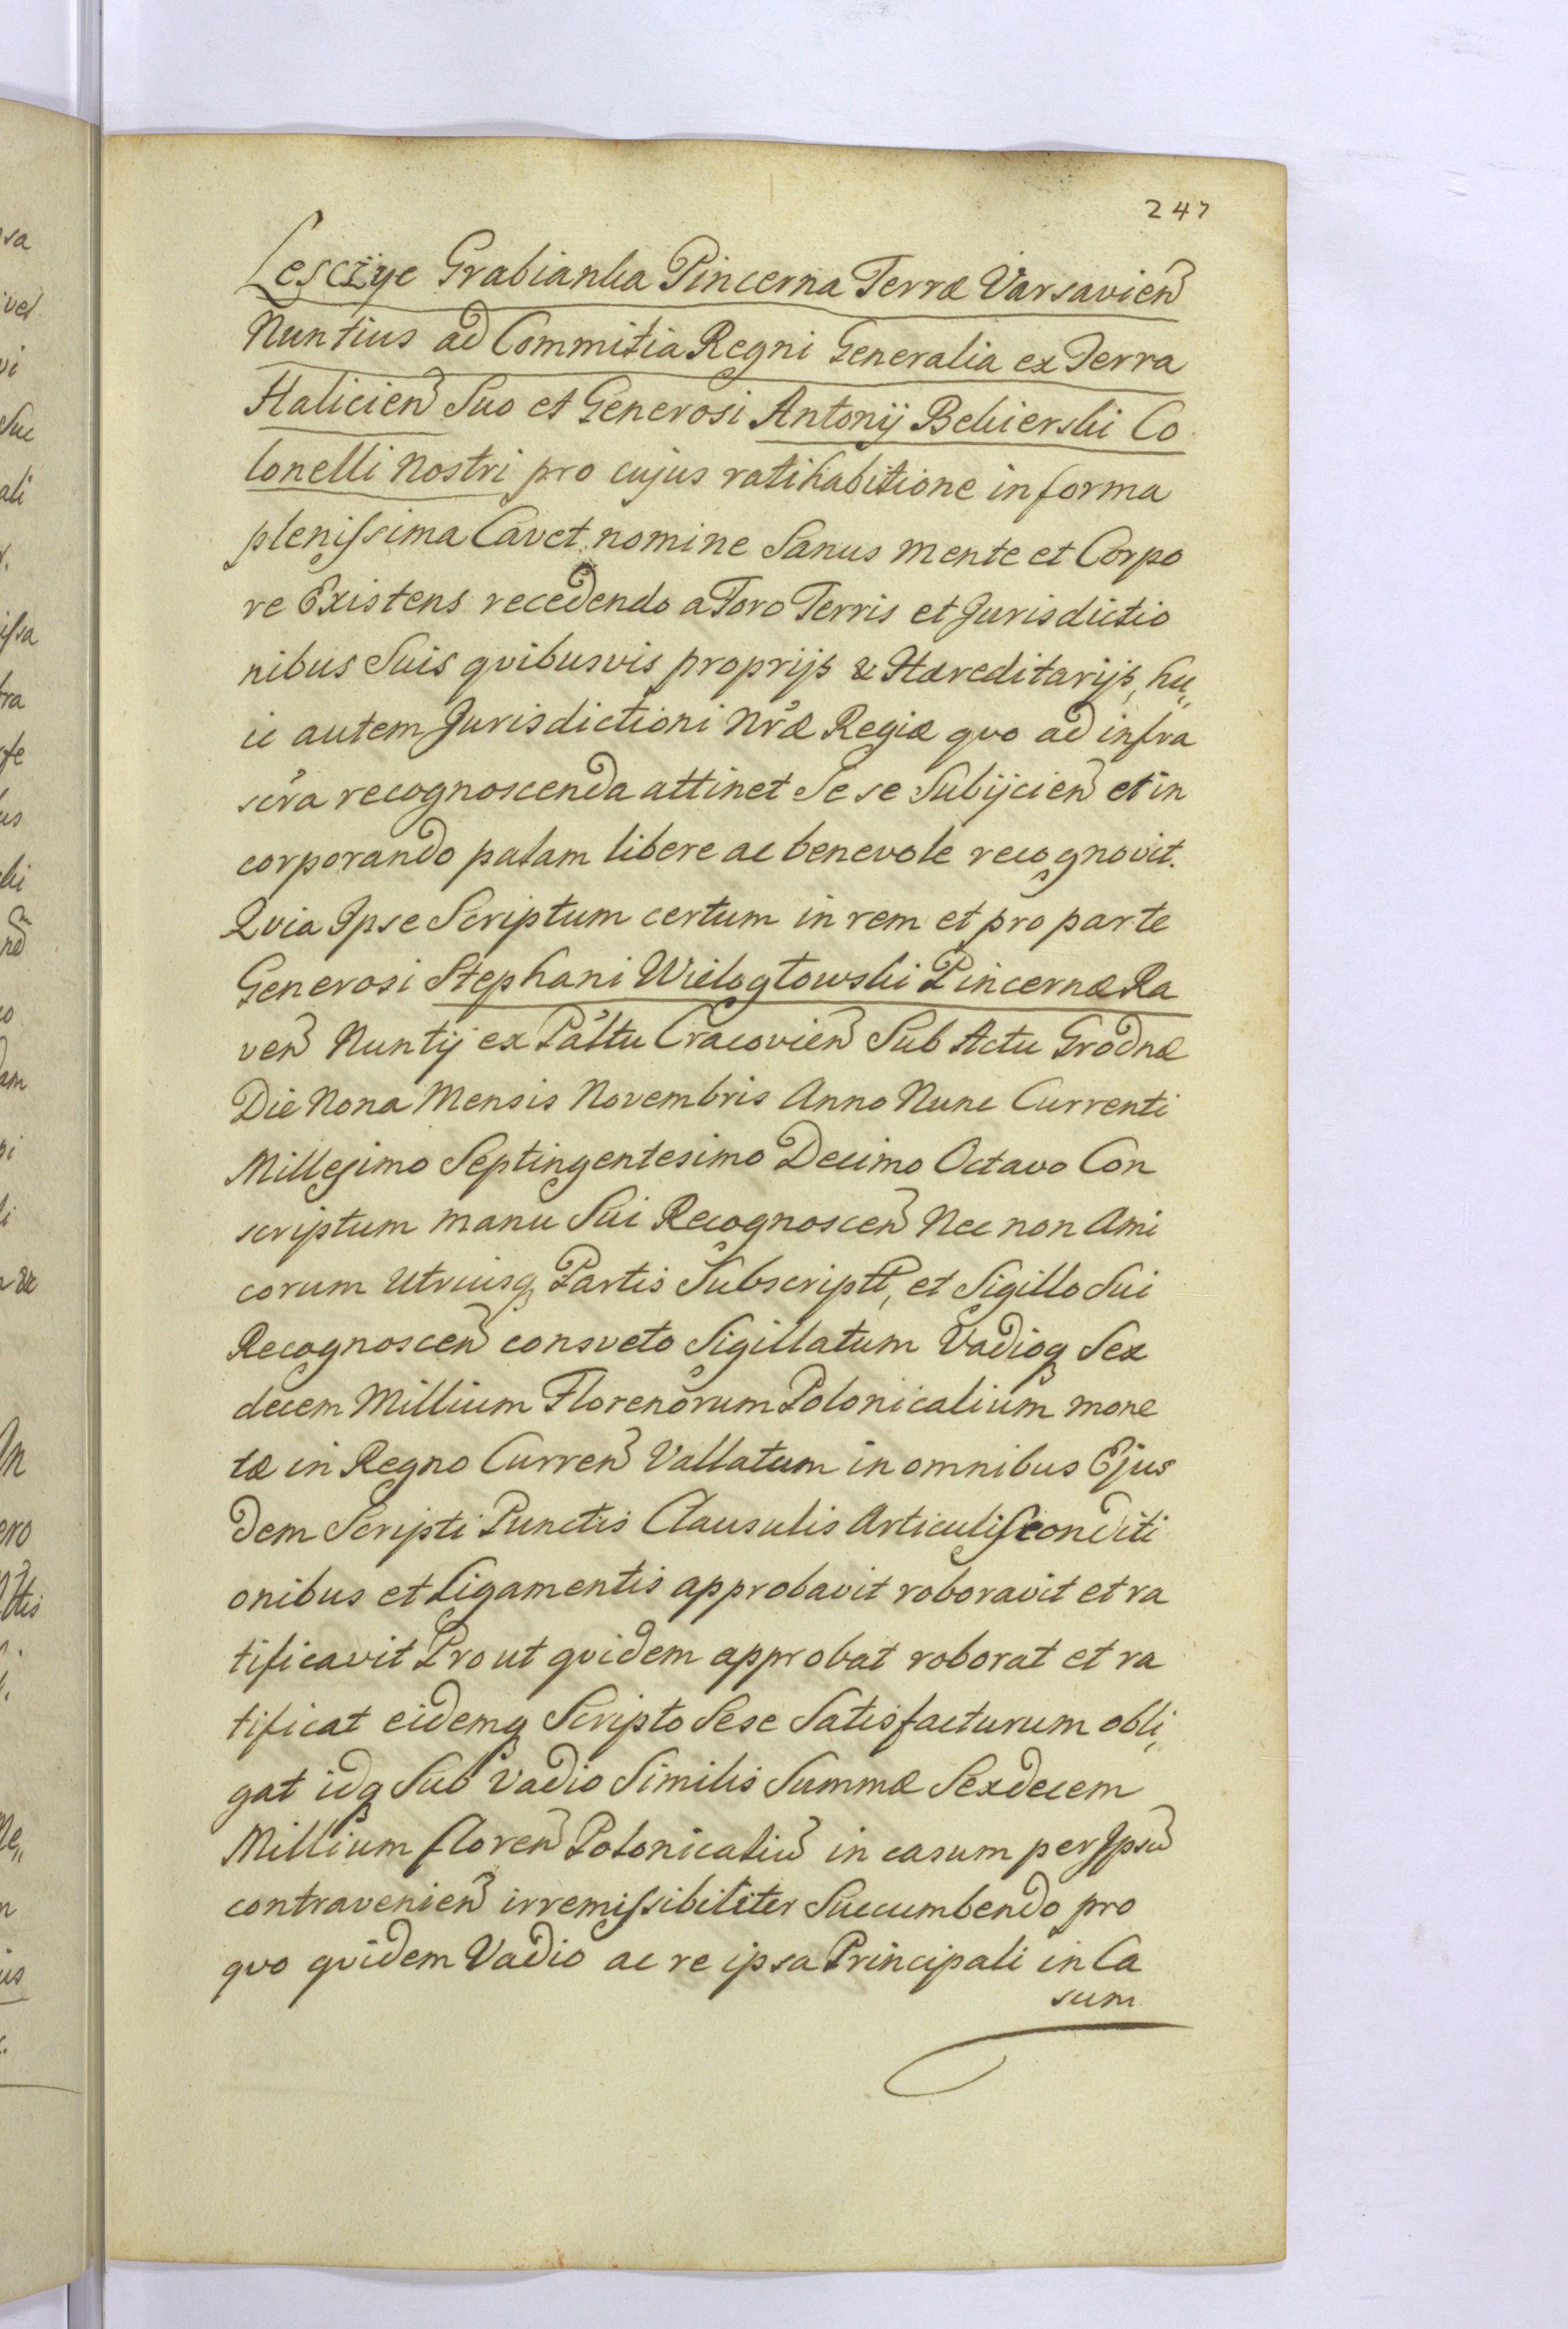 247
Lesczÿc Grabianka Pincerna Terræ Varsavień
Nuntius ad Commitia Regni Generalia ex Terra
Halicień Suo et Generosi Antonij Bekierski Co
lonelli Nostri pro cujus ratihabitione in forma
plenissima Cavet nomine Sanus mente et Corpo
re Existens recedendo a Foro Terris et Jurisdictio
nibus Suis qvibusvis proprijs & Hæreditarijs, hu„
ic autem Jurisdictioni Nræ Regiæ quo ad infra
scra recognoscenda attinet Se se Subijcień et in
corporando palam libere ac benevole recognovit.
Qvia Ipse Scriptum certum in rem et pro parte
Generosi Stephani Wielogłowski Pincernæ Ra
veń Nuntij ex Pałtu Cracovień Sub Actu Grodnæ
Die Nona Mensis Novembris Anno Nunc Currenti
Millesimo Septingentesimo Decimo Octavo Con
scriptum manu Sui Recognosceń Nec non Ami
corum Utriusq Partis Subscriptt, et Sigillo Sui
Recognosceń consveto Sigillatum Vadioq Sex
decem Millium Florenorum Polonicalium mone
tæ in Regno Curreń Vallatum in omnibus Ejus
dem Scripti Punctis Clausulis Articulis conditi
onibus et Ligamentis approbavit roboravit et ra
tificavit Prout qvidem approbat roborat et ra
tificat eidemq Scripto Sese Satisfacturum obli„
gat idq Sub Vadio Similis Summæ Sexdecem
Millium floreń Polonicaliu in casum per Ipsu
contravenień irremissibiliter Succumbendo pro
qvo qvidem Vadio ac re ipsa Principali in Ca
sum